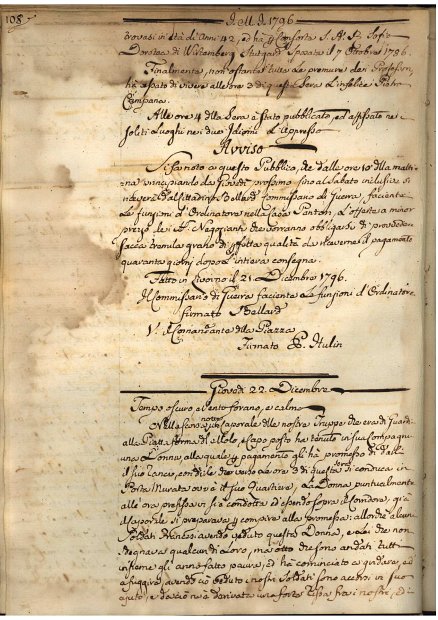 108 del 1796
trovasi in età di anni 42, ed há p Consorte S. A. R. Sofia
Dorotea di Wirtemberg Stutgard Sposata il 7 Ottobre 1786.
Finalmente, non ostante tutte le premure dei Professori,
há cessato di vivere alle ore 3 di questa Sera l'infelice Pietro
Campana.
Alle ore 4 della Sera è stato pubblicato, ed affissato ne
soliti Luoghi nei due Idiomi l'appresso
Avviso
Si fa noto a questo Pubblico, che dalle ore 10 della matti-
na principiando da Giovedì prossimo sino al Sabato inclusive si
riceverà dal Cittadino Bellard Commissario di Guerra, faciente
le funzioni d'Ordinatore nella Casa Panton, l'offerte a minor
prezzo dei Negozianti che vorranno obbligarsi di provvedere
sacca tremila grano di perfetta qualità da riceverne il pagamento
quaranta giorni dopo l'intiera consegna.
Fatto in Livorno il 21. Dicembre 1796.
Il Commissario di Guerra faciente le funzioni d'Ordinatore
firmato Bellard
V. Il Comandante della Piazza
Firmato Hulin
Giovedì 22. Dicembre
Tempo oscuro, vento forano, e calmo
Nella scorsa notte un Caporale delle nostre Truppe che era di Guardia
alla Piattaforma di Molo, e Capo posto ha tenuto in sua Compagnia
una Donna, alla quale p pagamento gli há promesso di dargli
il suo rancio, con dirle che verso le ore di questa Sera si conduca in
Porta Murata ov'è il suo Quartiere, La Donna puntualmente
alle ora prefissa vi si è condotta ed essendo sopra il Corridore, già
il Caporale si preparava p compire alla promessa: allorchè alcuni
Soldati Francesi avendo veduto questa Donna, e che non
sdegnava qualcun di loro, ma otto che sono andati tutti
insieme gli anno fatto paura, ed há cominciato a gridare, ed
a fuggire, avendo ciò veduto i nostri Soldati sono accorsi in suo
ajuto, e da ciò ne è derivata una forte rissa fra i nostri, ed i